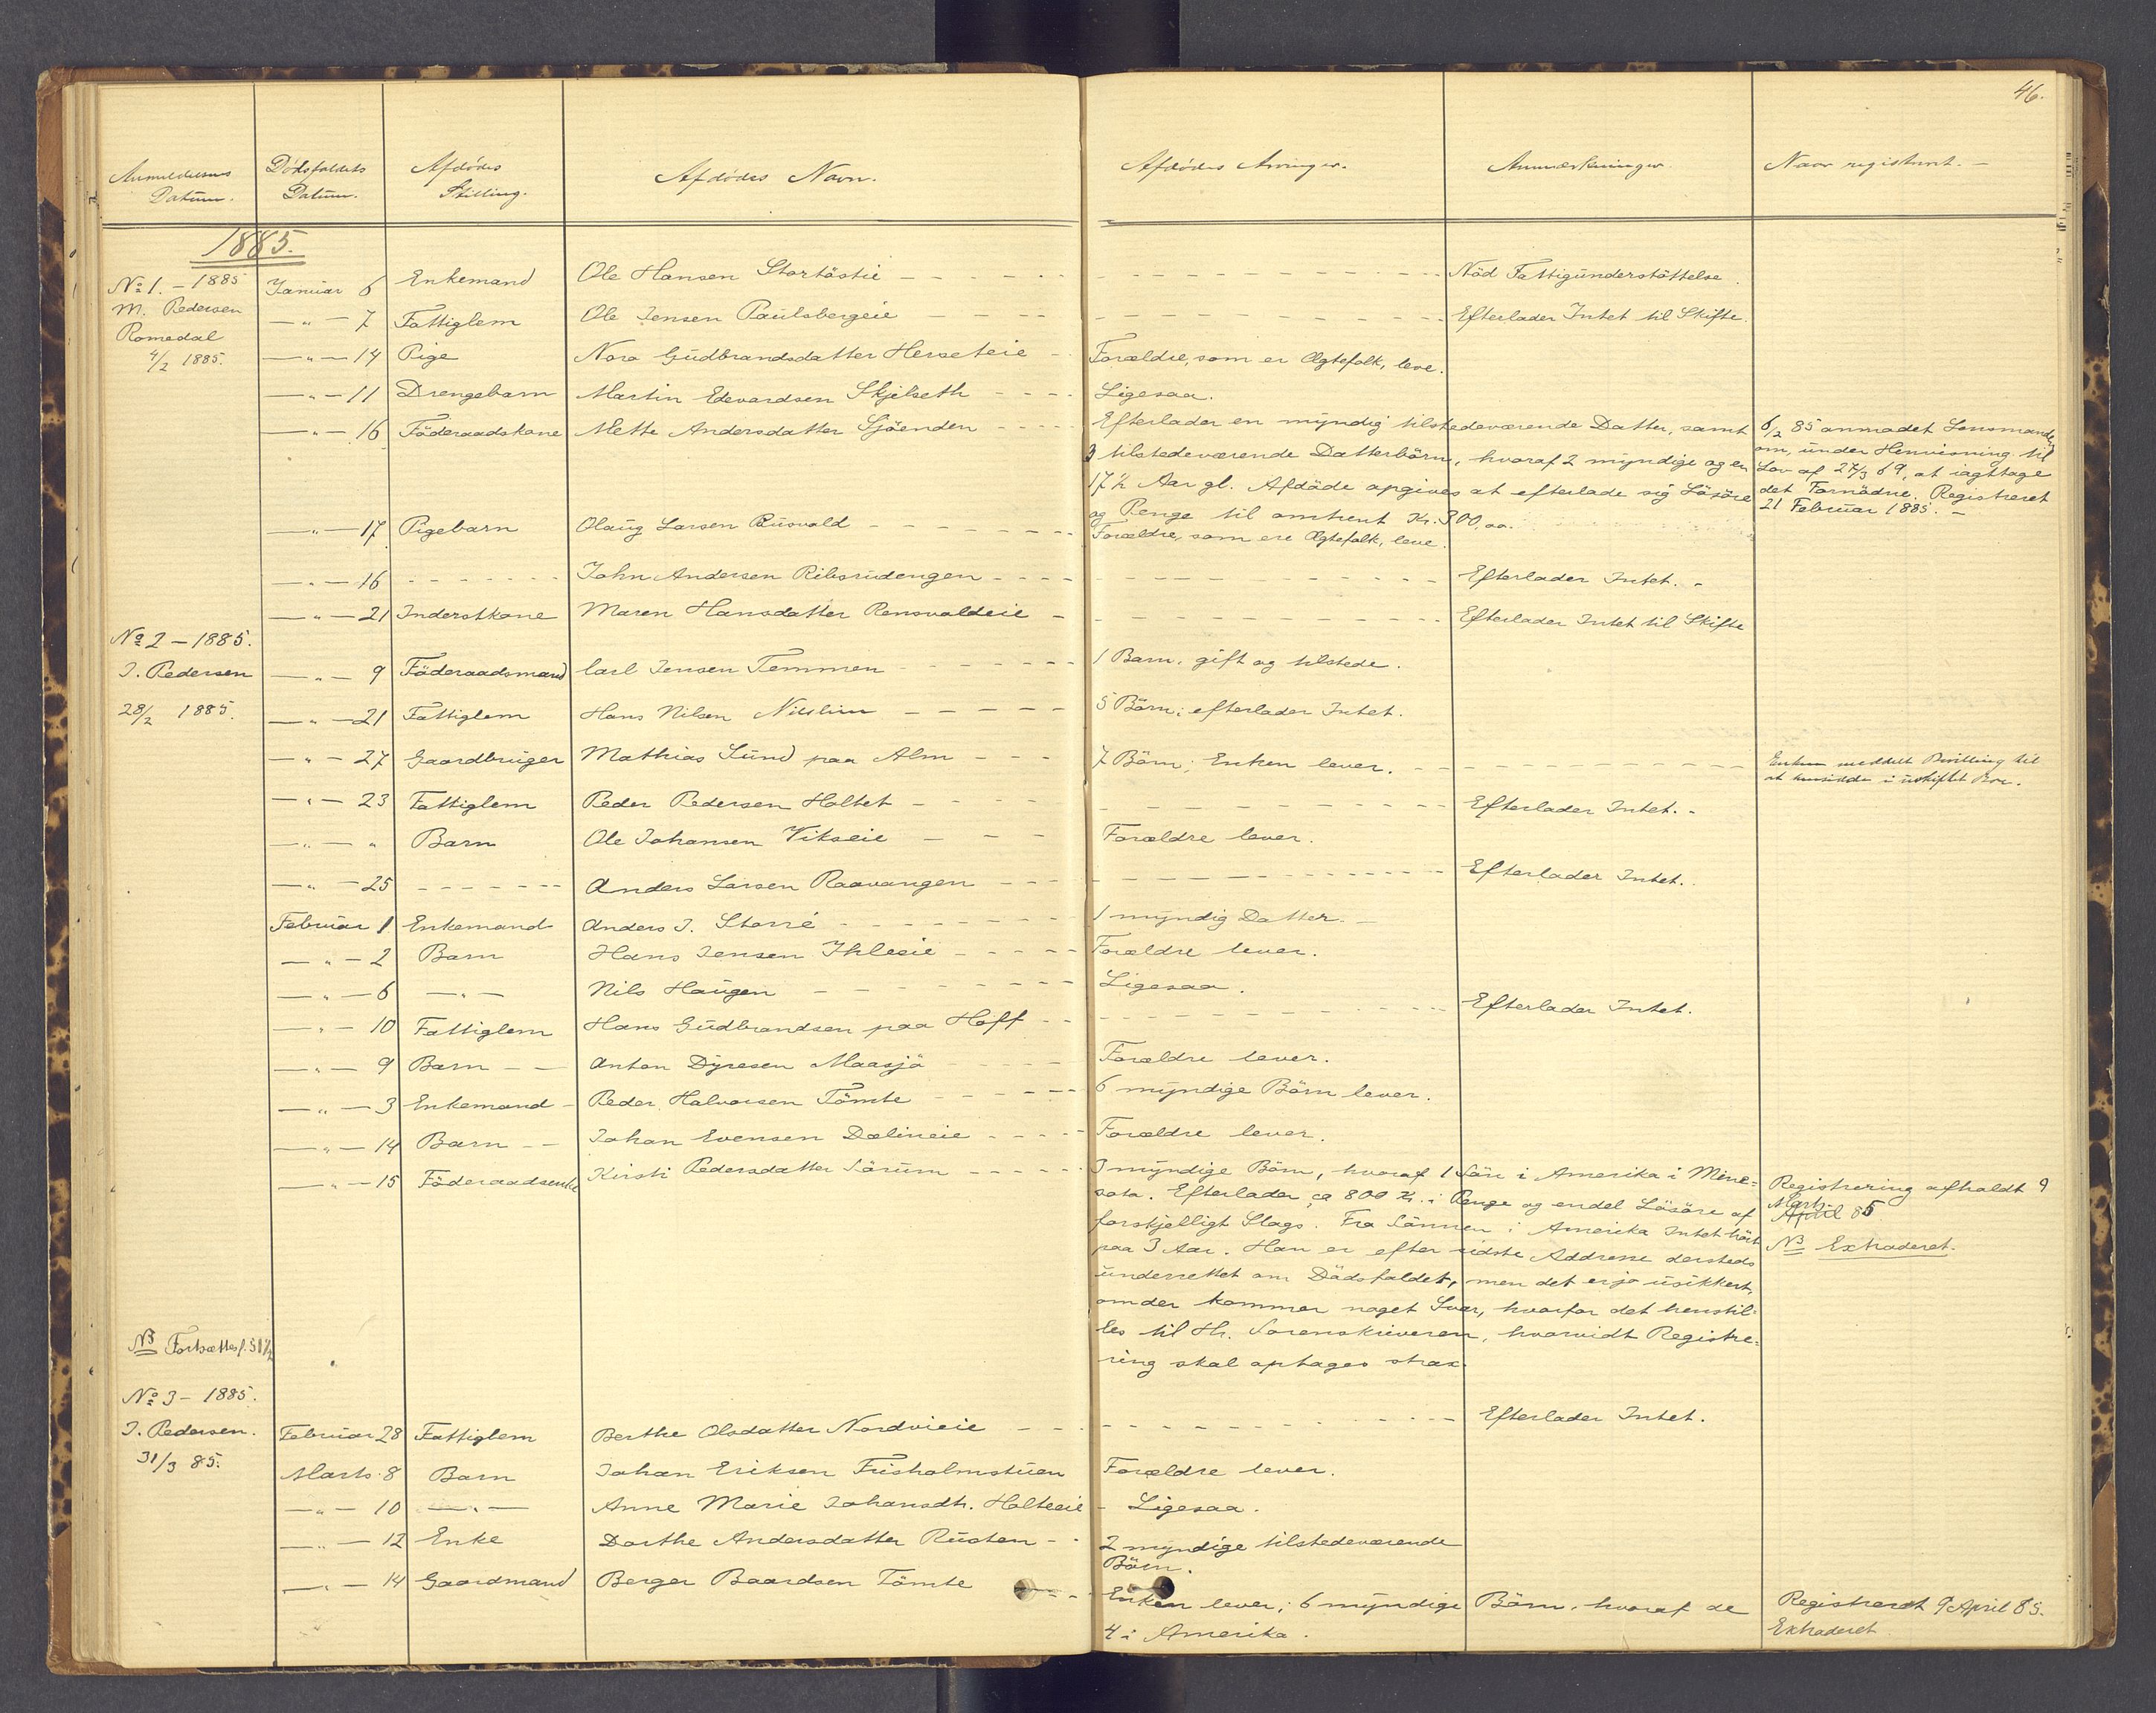 46.
Anmeldelsens Datum. Dödsfaldets Datum. Afdödes Stilling. Afdödes Navn. Afdödes Arvinger. Anmærkninger. Naar registreret. —
1885.
No 1. — 1885 Januar 6 Enkemand Ole Hansen Stortöstie Nöd Fattigunderstöttelse.
M. Pedersen —„— 7 Fattiglem Ole Jensen Paulsbergeie Efterlader Intet til Skifte.
Romedal
4/2 1885. —„— 14 Pige Nora Gudbrandsdatter Herseteie Forældre, som er Ægtefolk, leve.
—„— 11 Drengebarn Martin Edevardsen Skjelseth Ligesaa.
—„— 16 Föderaadskone Mette Andersdatter Sjöenden Efterlader en myndig tilstedeværende Datter, samt
3 tilstedeværende Datterbörn, hvoraf 2 myndige og en
17½ Aar gl. Afdöde opgives at efterlade sig Lösöre
og Penge til omtrent Kr. 300,00.
6/2 85 anmodet Lensmanden
om, under Henvisning til
Lov af 27/3 69, at iagttage
det Fornödne. Registreret
21 Februar 1885. —
—„— 17 Pigebarn Olaug Larsen Rusvold Forældre, som ere Ægtefolk, leve.
—„— 16 John Andersen Ribsrudengen Efterlader Intet. -
—„— 21 Inderstkone Maren Hansdatter Rensvoldeie Efterlader Intet til Skifte
No 2 — 1885.
J. Pedersen —„— 9 Föderaadsmand Carl Jensen Temmen 1 Barn, gift og tilstede.
28/2 1885. —„— 21 Fattiglem Hans Nilsen 5 Börn; efterlader Intet.
—„— 27 Gaardbruger Mathias Sund paa Alm 7 Börn; Enken lever. Enken meddelt Bevilling til
at hensidde i uskiftet Bo.
—„— 23 Fattiglem Peder Pedersen Holtet Efterlader Intet. -
—„— „ Barn Ole Johansen Vikseie Forældre lever.
—„— 25 Anders Larsen Raavangen Efterlader Intet.
Februar 1 Enkemand Anders J. Storre 1 myndig Datter. —
—„— 2 Barn Hans Jensen Ihleeie Forældre lever.
—„— 6 —„— Nils Haugen Ligesaa.
—„— 10 Fattiglem Hans Gudbrandsen paa Hoff Efterlader Intet.
—„— 9 Barn Anton Dyresen Maasjö Forældre lever.
—„— 3 Enkemand Peder Halvorsen Tömte 6 myndige Börn lever.
—„— 14 Barn Johan Evensen Dælineie Forældre lever.
—„— 15 Föderaadsenke Kirsti Pedersdatter Sörum 3 myndige Börn, hvoraf 1 Sön i Amerika i Mine-
sota. Efterlader ca 800 Kr. i Penge og endel Lösöre af
forskjelligt Slags. Fra Sönnen i Amerika Intet hört
paa 3 Aar. Han er efter sidste Addresse dersteds
underrettet om Dödsfaldet, men det er jo usikkert,
om der kommer noget Svar, hvorfor det henstil-
les til Hr. Sorenskriveren, hvorvidt Registre-
ring skal optages strax.
Registrering afholdt 9
Marts
April 85
NB Extraderet.
NB Fortsættes f. 51½
No 3 — 1885.
J. Pedersen. Februar 28 Fattiglem Berthe Olsdatter Nordvieie Efterlader Intet.
31/3 85. Marts 8 Barn Johan Eriksen Frisholmstuen Forældre lever.
—„— 10 —„— Anne Marie Johansdt. Holteeie Ligesaa.
—„— 12 Enke Dorthe Andersdatter Rusten 2 myndige tilstedeværende
Börn.
—„— 14 Gaardmand Berger Baardsen Tömte Enken lever; 6 myndige Börn, hvoraf de
4 i Amerika.
Registreret 9 April 85.
Extraderet